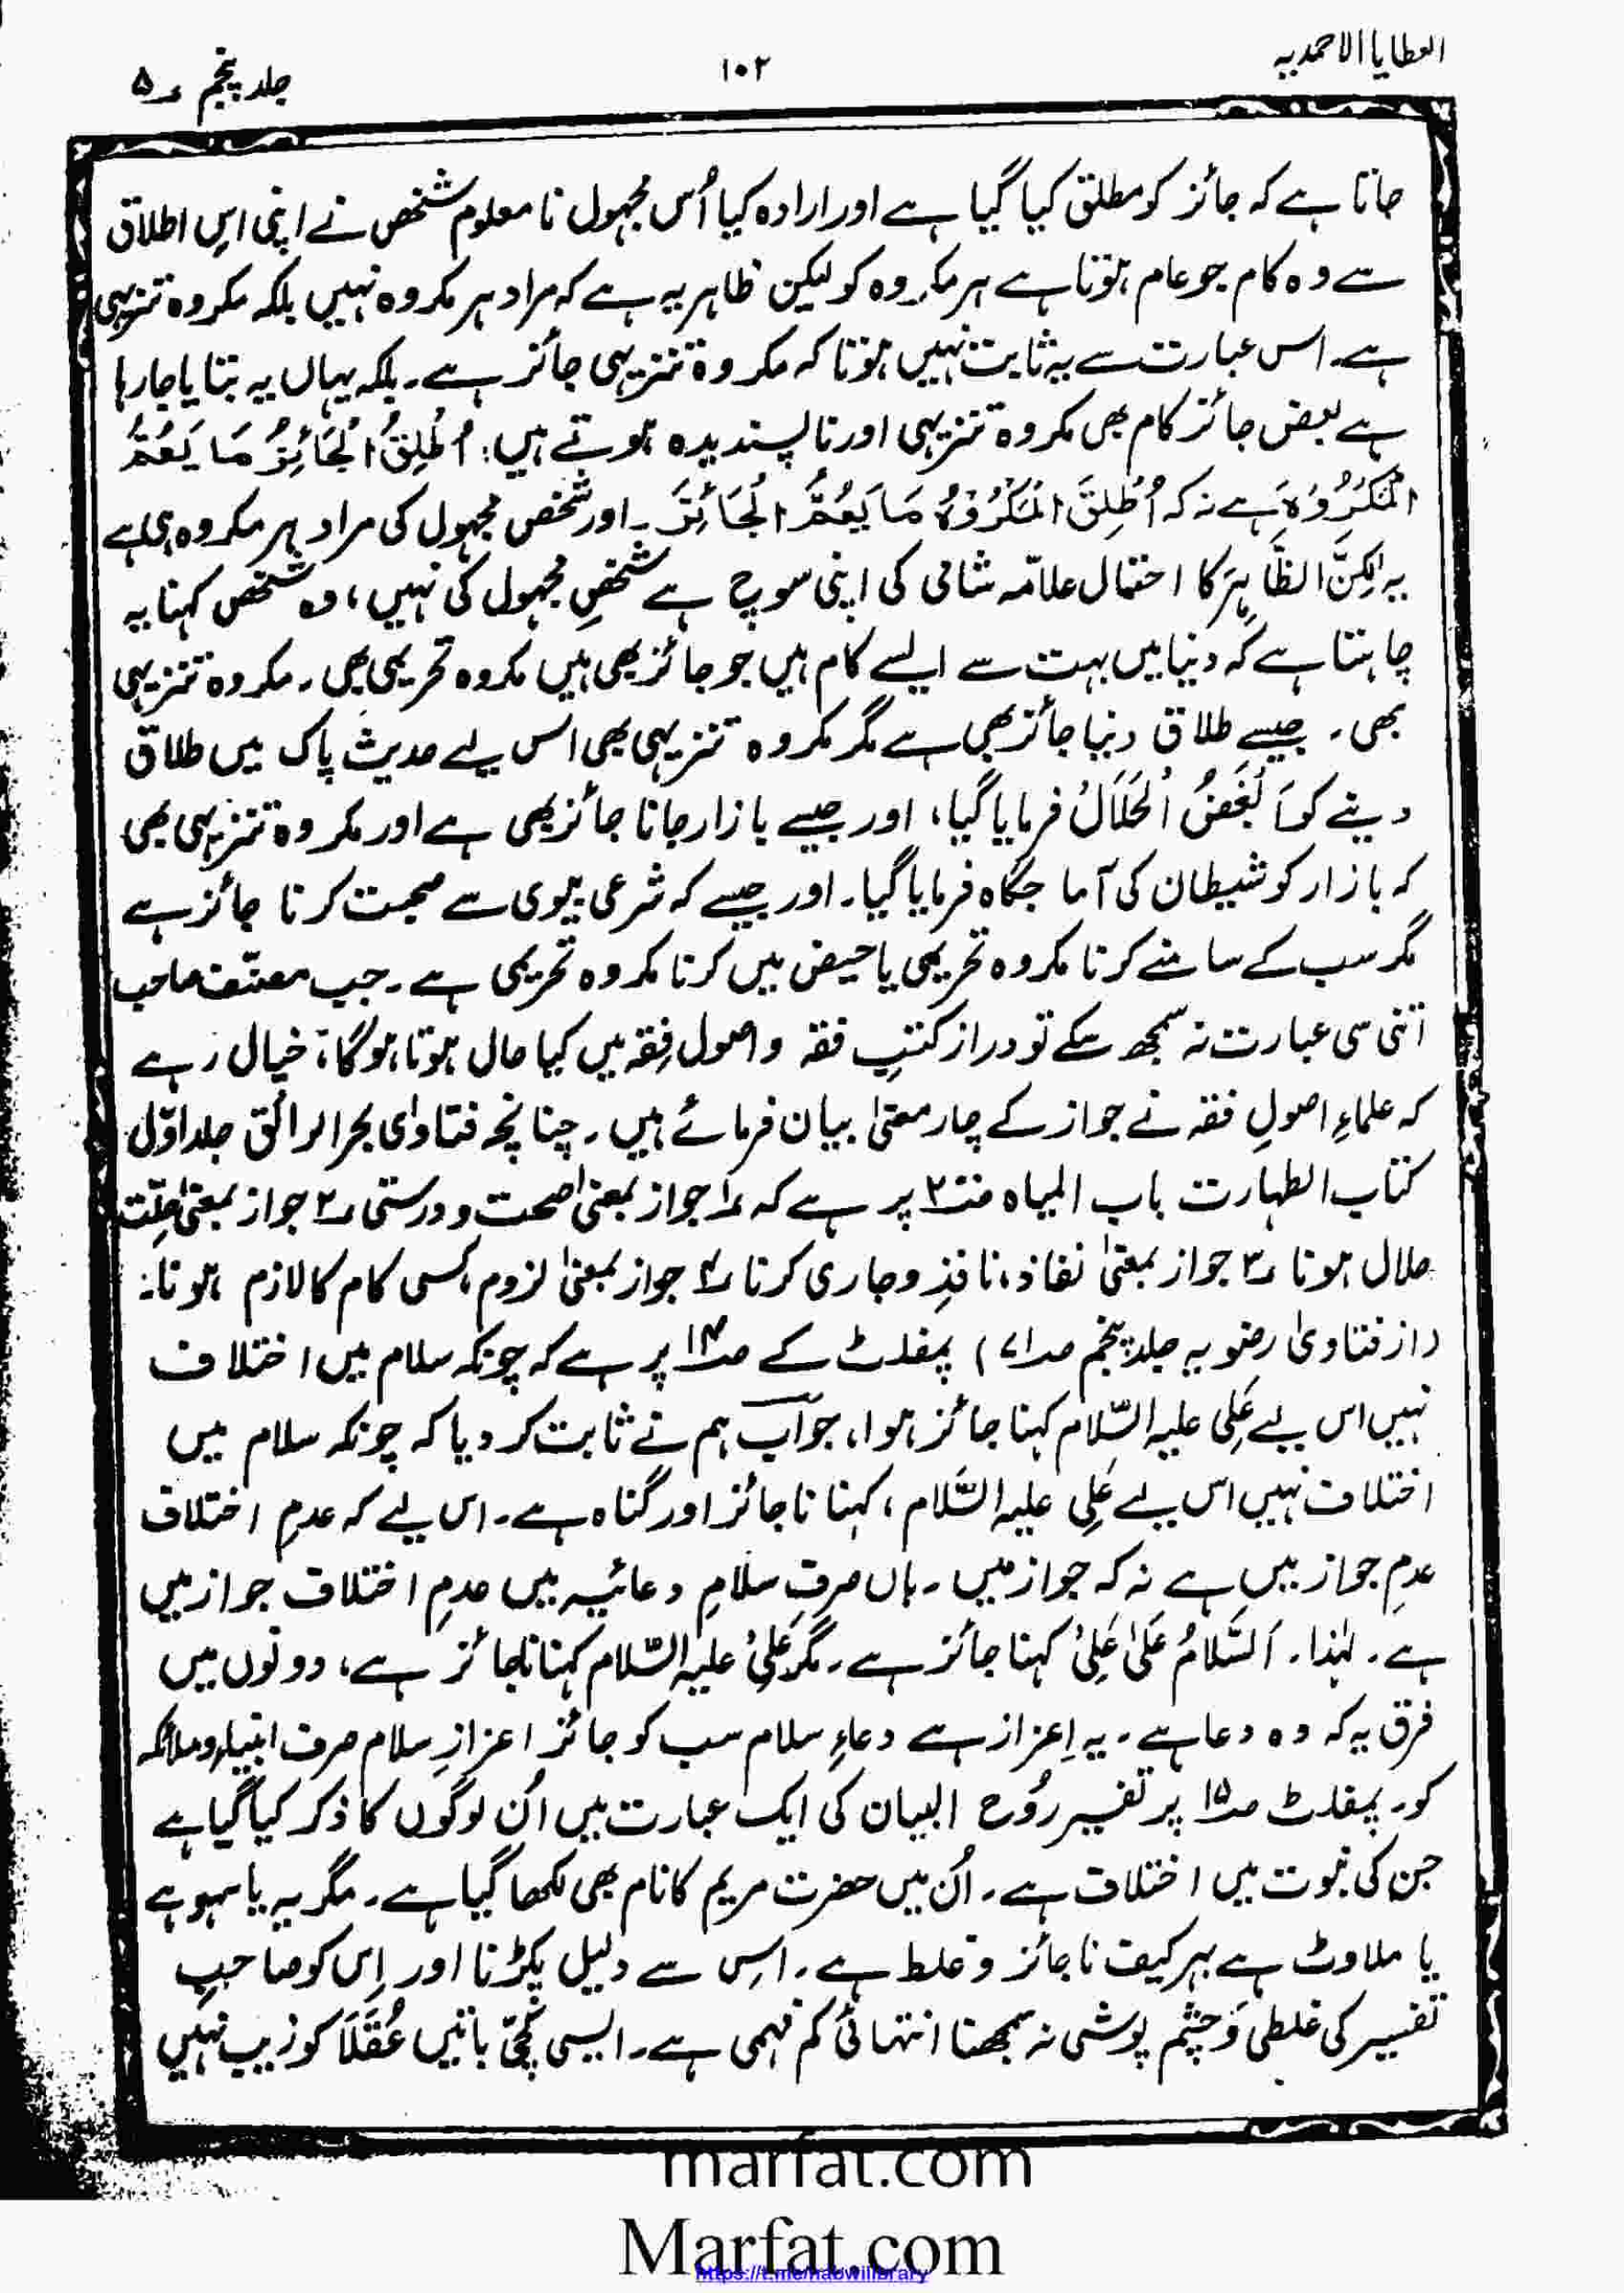 العطایا الاحمدیہ
۱۰۲
جلد پنجم ۵
جاتا ہے کہ جائز کو مطلق کیا گیا ہے اور ارادہ کیا اُس مجہول نا معلوم شخص نے اپنی اس اطلاق
سے وہ کام جو عام ہوتا ہے ہر مکروہ کو لیکن ظاہر یہ ہے کہ مراد ہر مکروہ نہیں بلکہ مکروہ تنزیہی
ہے۔ اس عبارت سے یہ ثابت نہیں ہوتا کہ مکروہ تنزیہی جائز ہے۔ بلکہ یہاں یہ بتایا جا رہا
ہے بعض جائز کام بھی مکروہ تنزیہی اور نا پسندیدہ ہوتے ہیں: اُطْلِقُ الْجَائِزُ مَا یَعُمُّ
الْمَکْرُوْہَ ہے نہ کہ اُطْلِقَ الْمَکْرُوْہُ مَا یَعُمُّ الْجَائِزَ۔ اور شخص مجہول کی مراد ہر مکروہ ہی ہے
یہ لٰکِنَّ الظَّاہِرَ کا احتمال علامّہ شامی کی اپنی سوچ ہے شخصِ مجہول کی نہیں، وہ شخص کہنا یہ
چاہتا ہے کہ دنیا میں بہت سے ایسے کام ہیں جو جائز بھی ہیں مکروہ تحریمی بھی۔ مکروہ تنزیہی
بھی۔ جیسے طلاق دینا جائز بھی ہے مگر مکروہ تنزیہی بھی اس لیے حدیث پاک میں طلاق
دینے کو اَبْغَضُ الْحَلَالُ فرمایا گیا، اور جیسے بازار جانا جائز بھی ہے اور مکروہ تنزیہی بھی
کہ بازار کو شیطان کی آما جگاہ فرمایا گیا۔ اور جیسے کہ شرعی بیوی سے صحبت کرنا جائز ہے
مگر سب کے سامنے کرنا مکروہ تحریمی یا حیض میں کرنا مکروہ تحریمی ہے۔ جب مصنّف صاحب
اتنی سی عبارت نہ سمجھ سکے تو دراز کتبِ فقہ و اصولِ فقہ میں کیا حال ہوتا ہوگا، خیال رہے
کہ علماءِ اصولِ فقہ نے جواز کے چار معنیٰ بیان فرمائے ہیں۔ چنانچہ فتاوٰی بحر الرائق جلد اوّل
کتاب الطہارت باب المیاہ پر ہے کہ ۱ جواز بمعنیٰ صحت و درستی ۲ جواز بمعنیٰ حِلّت
حلال ہونا ۳ جواز بمعنیٰ نفاذ، نافذ و جاری کرنا ۴ جواز بمعنیٰ لزوم، کسی کام کا لازم ہونا۔
(از فتاویٰ رضویہ جلد پنجم صا۷) پمفلٹ کے صـ۱۴ پر ہے کہ چونکہ سلام میں اختلاف
نہیں اس لیے عَلِی علیہ السّلام کہنا جائز ہوا، جواب ہم نے ثابت کر دیا کہ چونکہ سلام میں
اختلاف نہیں اس لیے عَلِی علیہ السَّلام، کہنا ناجائز اور گناہ ہے۔ اس لیے کہ عدمِ اختلاف
عدمِ جواز میں ہے نہ کہ جواز میں۔ ہاں صرف سلامِ دعائیہ میں عدمِ اختلاف جواز میں
ہے۔ لہٰذا۔ اَلسَّلَامُ عَلیٰ عَلِیْ کہنا جائز ہے۔ مگر عَلِیْ علیہ السّلام کہنا ناجائز ہے، دونوں میں
فرق یہ کہ وہ دعا ہے۔ یہ اِعزاز ہے دعاءِ سلام سب کو جائز اعزازِ سلام صرف انبیاء و ملائکہ
کو۔ پمفلٹ صـ۱۵ پر تفسیر رُوح البیان کی ایک عبارت میں اُن لوگوں کا ذکر کیا گیا ہے
جن کی نبوت میں اختلاف ہے۔ اُن میں حضرت مریم کا نام بھی لکھا گیا ہے۔ مگر یہ یا سہو ہے
یا ملاوٹ ہے بہر کیف ناجائز و غلط ہے۔ اِس سے دلیل پکڑنا اور اِس کو صاحبِ
تفسیر کی غلطی وَ چشم پوشی نہ سمجھنا انتہائی کم فہمی ہے۔ ایسی کچّی باتیں عُقَلَا کو زیب نہیں
marfat.com
Marfat.com
https://t.me/nabwilibrary